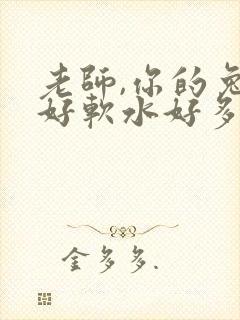 老師,你的兔
好軟水好多
金多多.